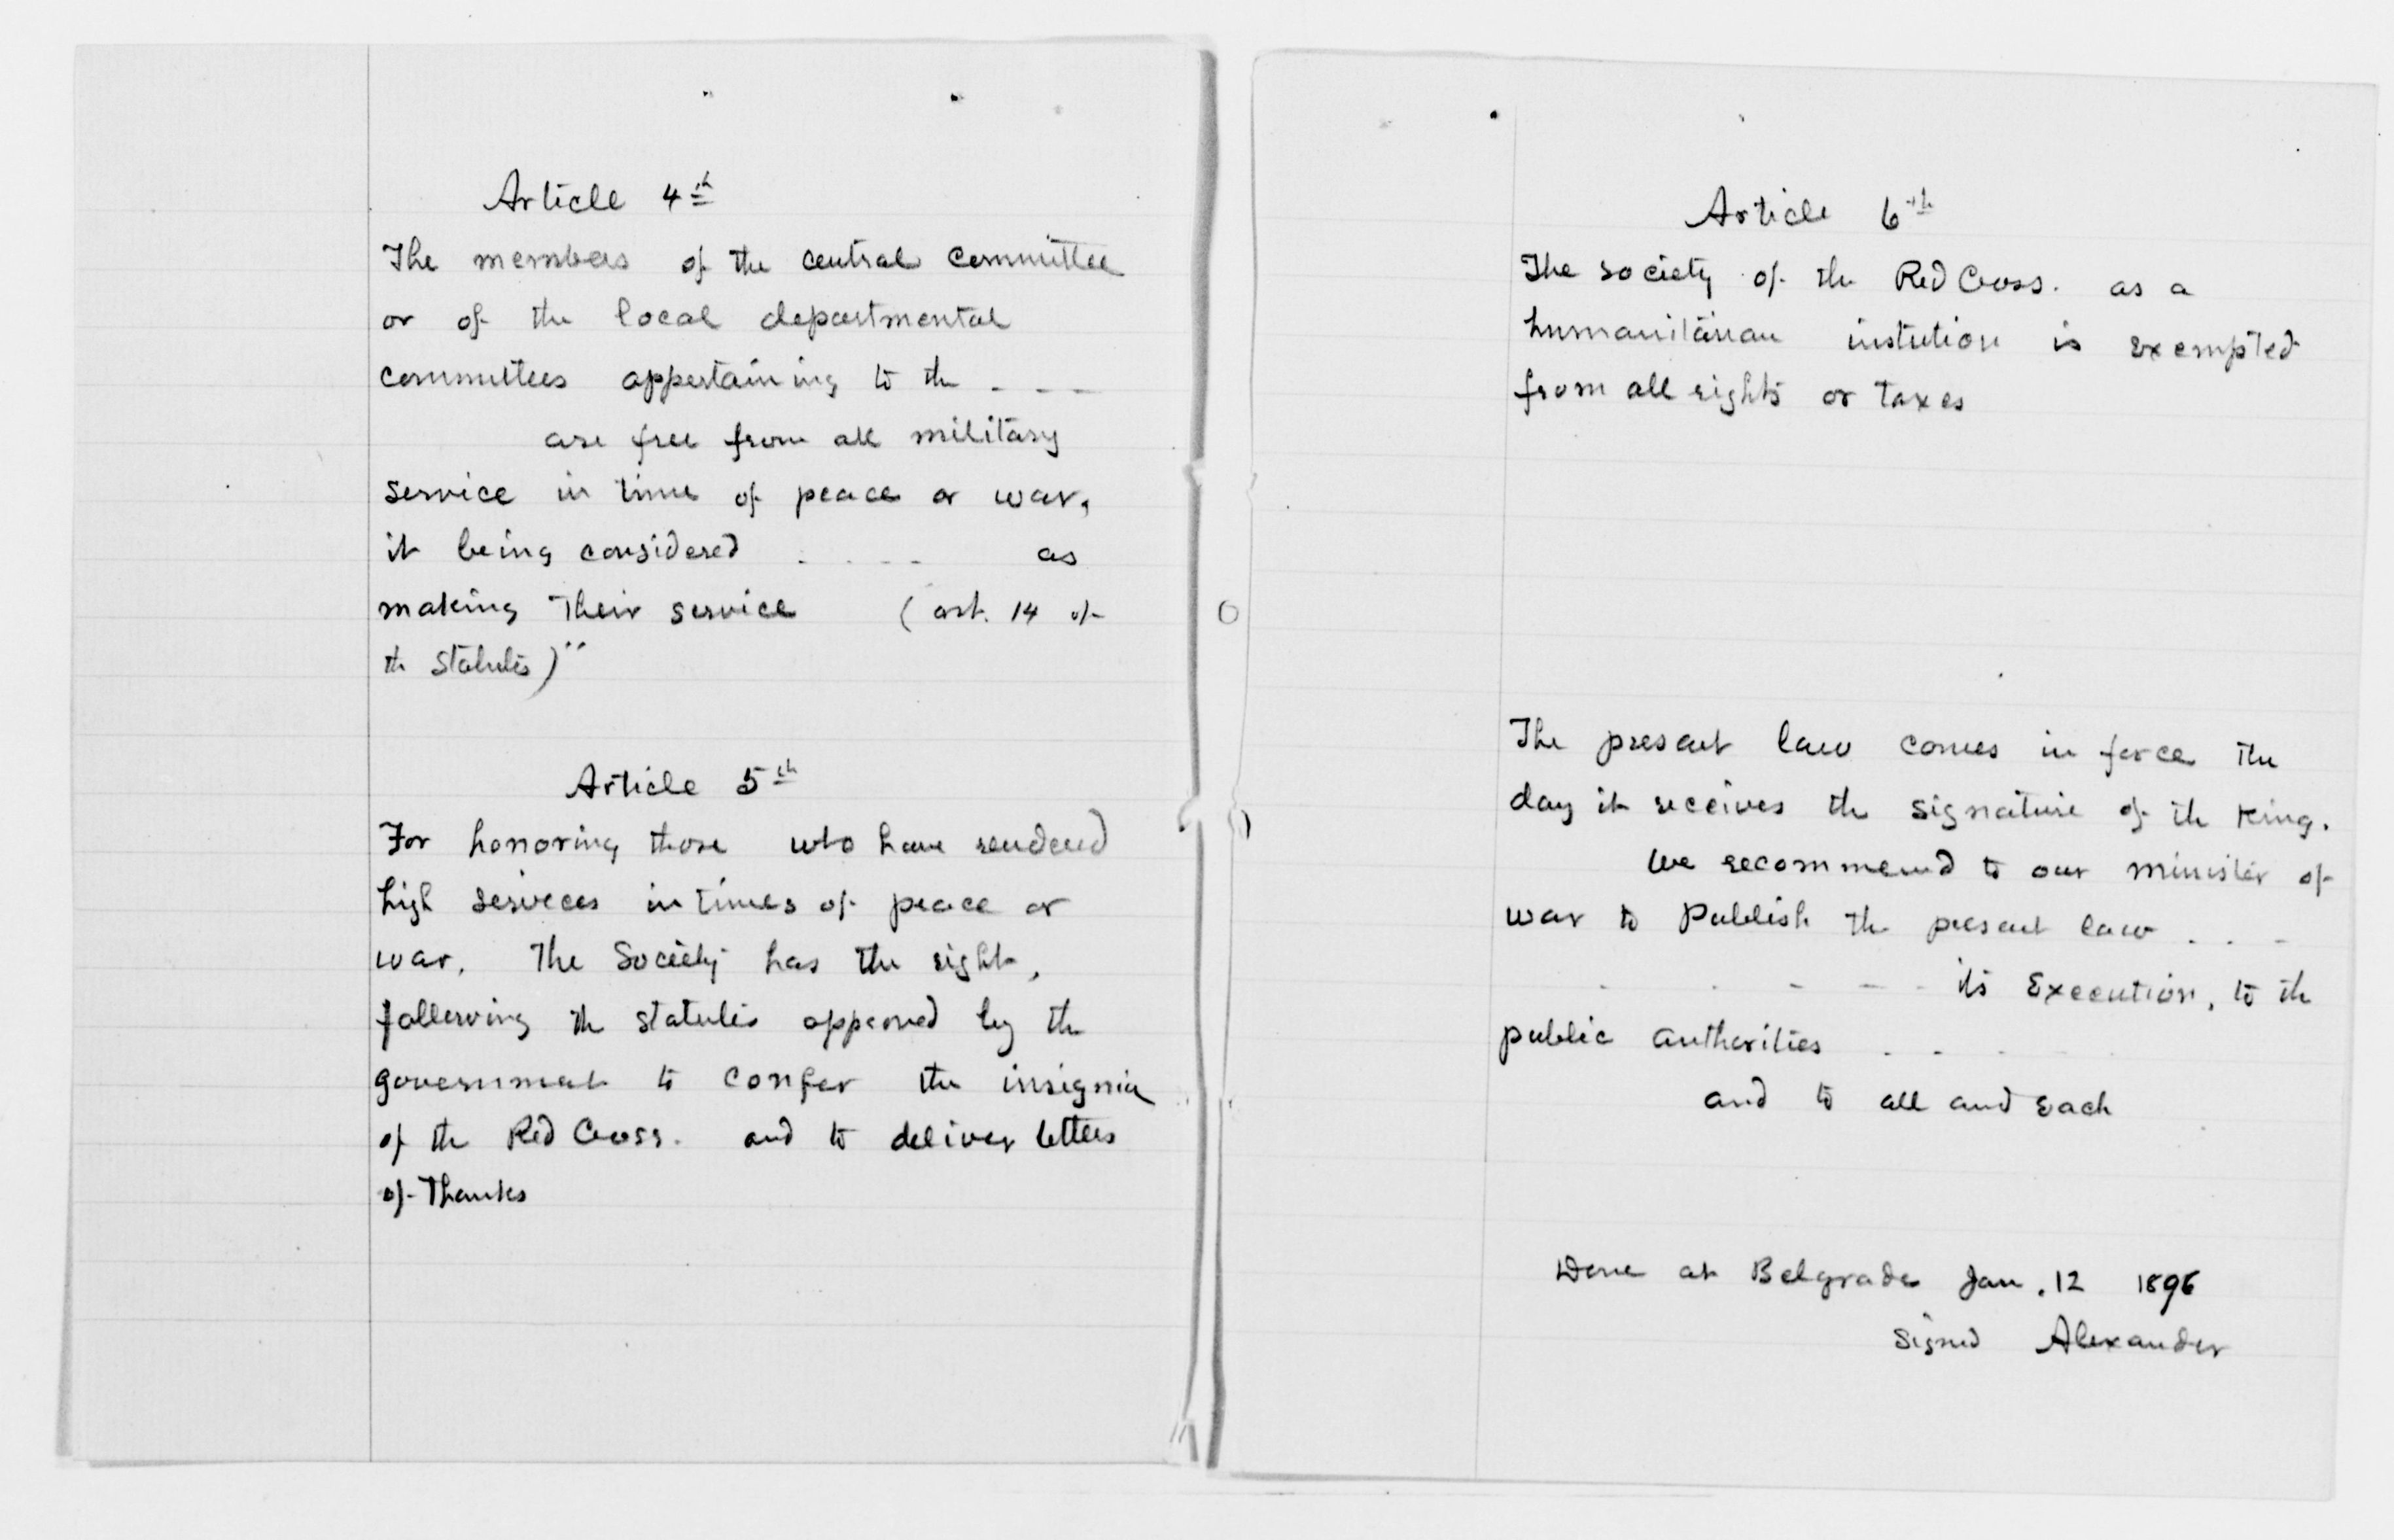 Article 4th
The members of the central committee
or of the local departmental
committees appertaining to the - - -
are free from all military
service in time of peace or war,
it being considered . . - - as
making their service (art. 14 of
the statutes)"
Article 5th
For honoring those who have rendered
high services in times of peace or
war, The Society has the right,
following the statutes approved by the
government to confer the insignia
of the Red Cross. and to deliver letters
of Thanks
Article 6th
The society of the Red Cross. as a
humanitarian instution is exempted
from all rights or taxes
The present law comes in force the
day it receives the signature of the King.
We recommend to our minister of
war to Publish the present law . . -
- - - - - its Execution, to the
public authorities . - -
and to all and each
Done at Belgrade Jan. 12 1896
Signed Alexander